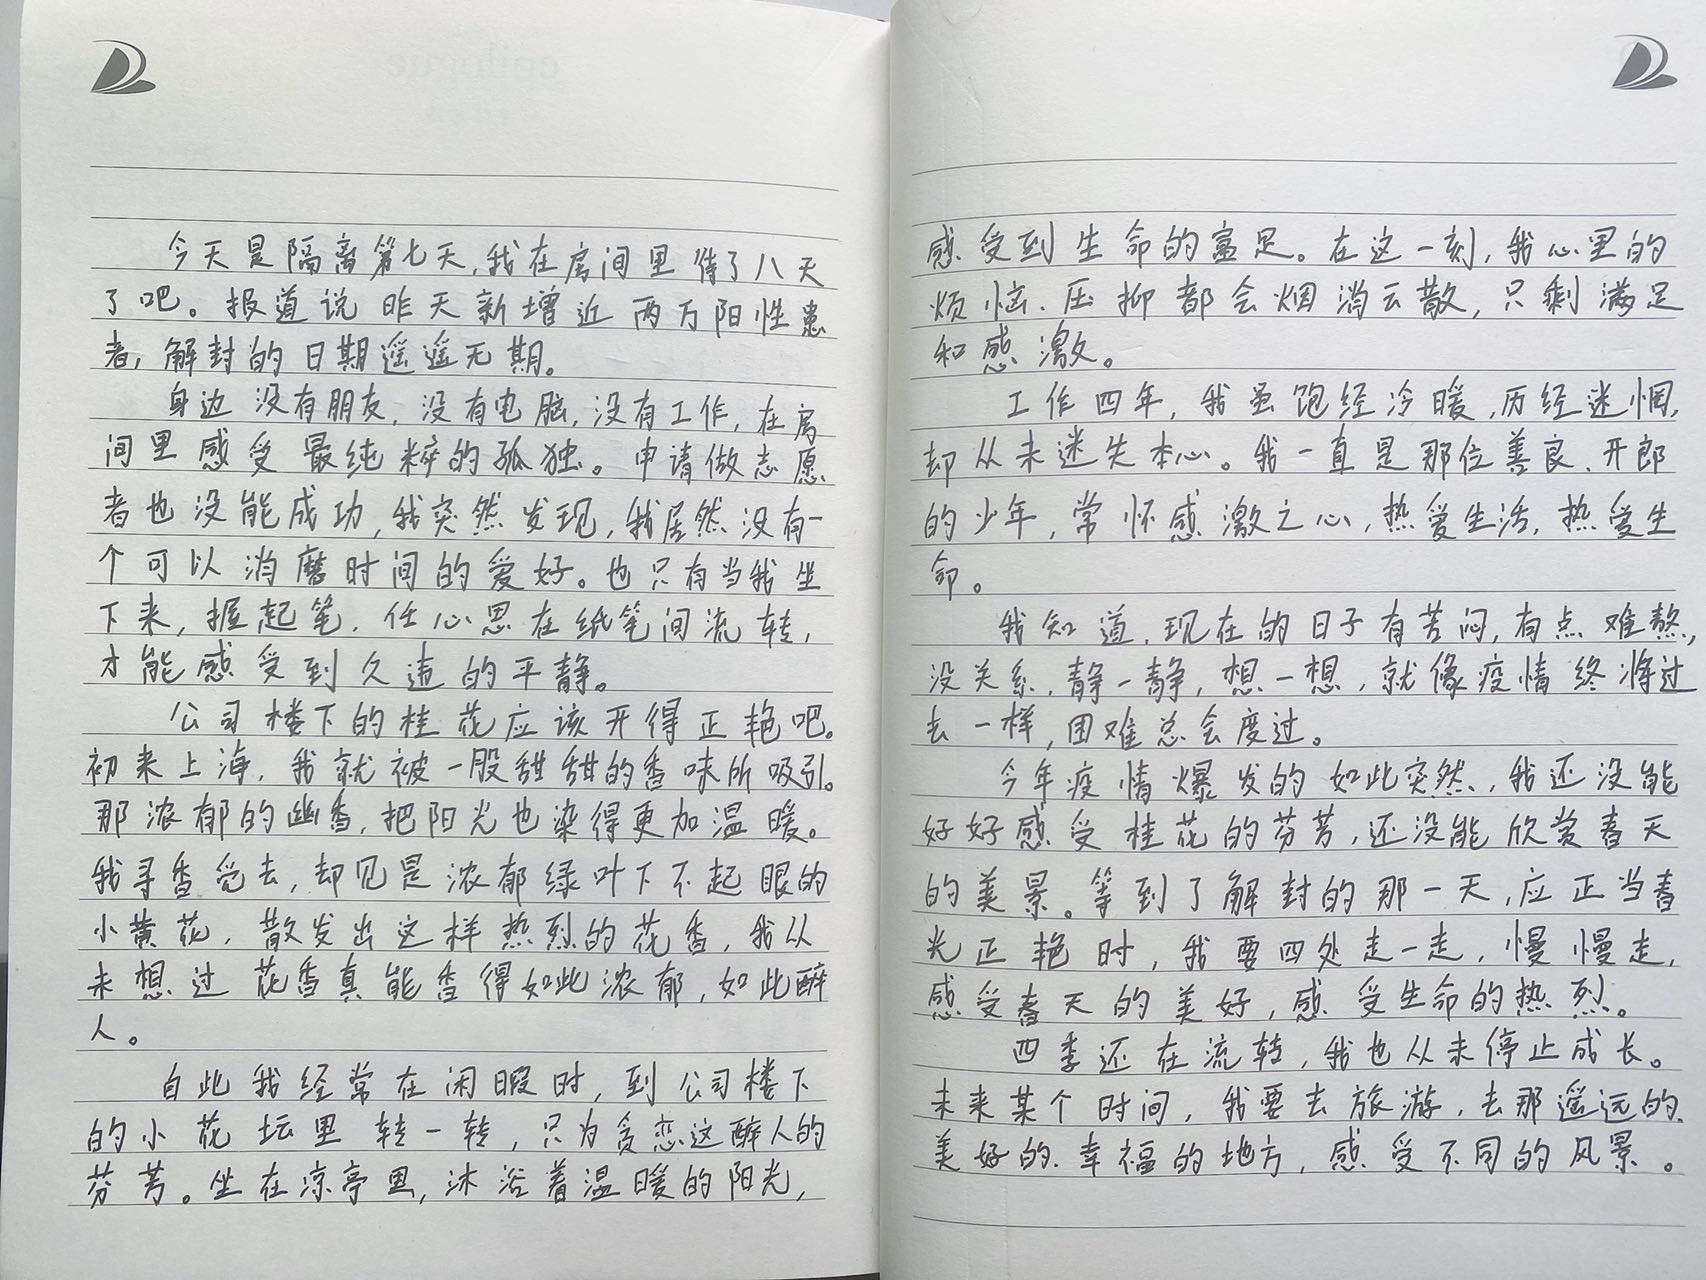 今天是隔离第七天,我在房间里待了八天
了吧。报道说昨天新增近两万阳性患
者,解封的日期遥遥无期。
身边没有朋友,没有电脑,没有工作,在房
间里感受最纯粹的孤独。申请做志愿
者也没能成功,我突然发现,我居然没有一
个可以消磨时间的爱好。也只有当我坐
下来,握起笔,任心思在纸笔间流转,
才能感受到久违的平静。
公司楼下的桂花应该开得正艳吧。
初来上海,我就被一股甜甜的香味所吸引。
那浓郁的幽香,把阳光也染得更加温暖。
我寻香觅去,却见是浓郁绿叶下不起眼的
小黄花,散发出这样热烈的花香,我从
未想过花香真能香得如此浓郁,如此醉
人。
自此我经常在闲暇时,到公司楼下
的小花坛里转一转,只为贪恋这醉人的
芬芳。坐在凉亭里,沐浴着温暖的阳光,
感受到生命的富足。在这一刻,我心里的
烦恼、压抑都会烟消云散,只剩满足
和感激。
工作四年,我虽饱经冷暖,历经迷惘,
却从未迷失本心。我一直是那位善良、开郎
的少年,常怀感激之心,热爱生活,热爱生
命。
我知道,现在的日子有苦闷,有点难熬,
没关系,静一静,想一想,就像疫情终将过
去一样,困难总会度过。
今年疫情爆发的如此突然,我还没能
好好感受桂花的芬芳,还没能欣赏春天
的美景。等到了解封的那一天,应正当春
光正艳时,我要四处走一走,慢慢走,
感受春天的美好,感受生命的热烈。
四季还在流转,我也从未停止成长。
未来某个时间,我要去旅游,去那遥远的、
美好的、幸福的地方,感受不同的风景。